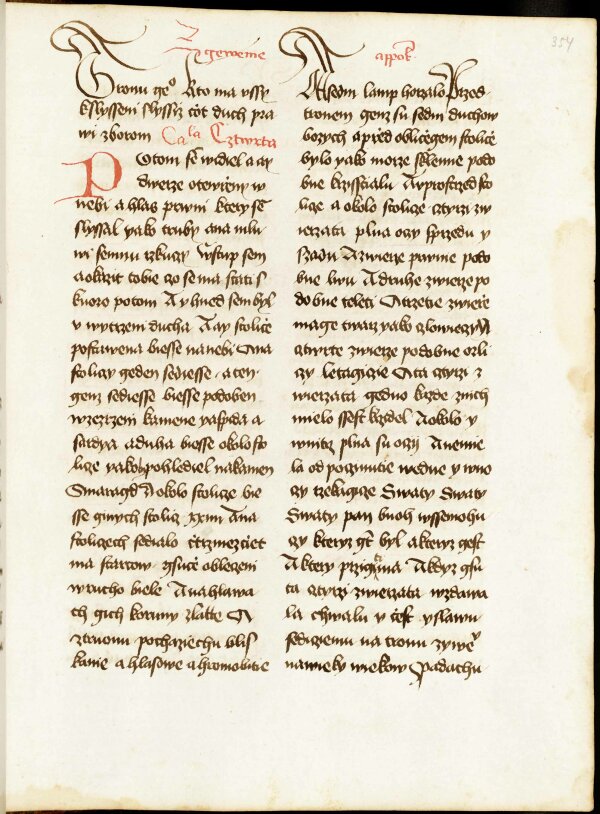 Zgewenie
appok
354
Tronu geo Kto ma vssy
kslysseni slyssiz cot duch pra
wi zborom Cala Cztwrta
Potom sē widiel a ay
dwerze otewrzeny w
nebi a hlas prwni ktery sē
slyssal yako truby ana mlu
wi semnu rzkucz Wstup sem
a okazit tobie czo se ma stati s
kuozo potom A yhned sem byl
v wytrzeni ducha A ay stolicē
postawena biesse na nebi A na
stoliczy geden sediesse a ten
genz sediesse biesse podoben
wzezrzeni kamene yaspida a
sardyn a duha biesse okolo sto
licze yako pohlediel na kamen
Smaragd A okolo stolicze bie
sse ginych stolicz xxiiii A na
stoliczech sedialo cztrzmezciet
ma starcow gsuce obleczeni
w rucho biele A na hlawa
ch gich koruny zlatte A
z tronu pochaziechu blis
kanie a hlasowe a hromobitie
A sedm lamp horzalo Przed
tronem genz su sedm duchow
bozych a przed obliczegem stolice
bylo yako morze sklenne podo
bne krzisstialu A vprostrzed sto
licze a okolo stolicze cztyrzi zw
ierzata plna oczy sprzedu y
szadu A zwierze prwnie podo
bne lwu A druhe zwierze po
dobne teleti A trzetie zwierze
mage twarz yako czlowieczy A
cztwrte zwierze podobne orli
czy letagicze A ta cztyrzi z
wierzata gedno kazde z nich
mielo ssest krzidel A okolo y
wnitrz plna su oczy A nemie
la odpoczinutie wedne y w no
czy rzekagicze Swaty Swaty
Swaty pan buoh wssemohu
czy kteryz gt byl a kteryz gest
A ktery przigma A kdyz gsu
ta cztyrzi zwierzata wzdawa
la chwalu y čest yslawu
sedicziemu na tronu zywe
na wieky wiekow Padachu